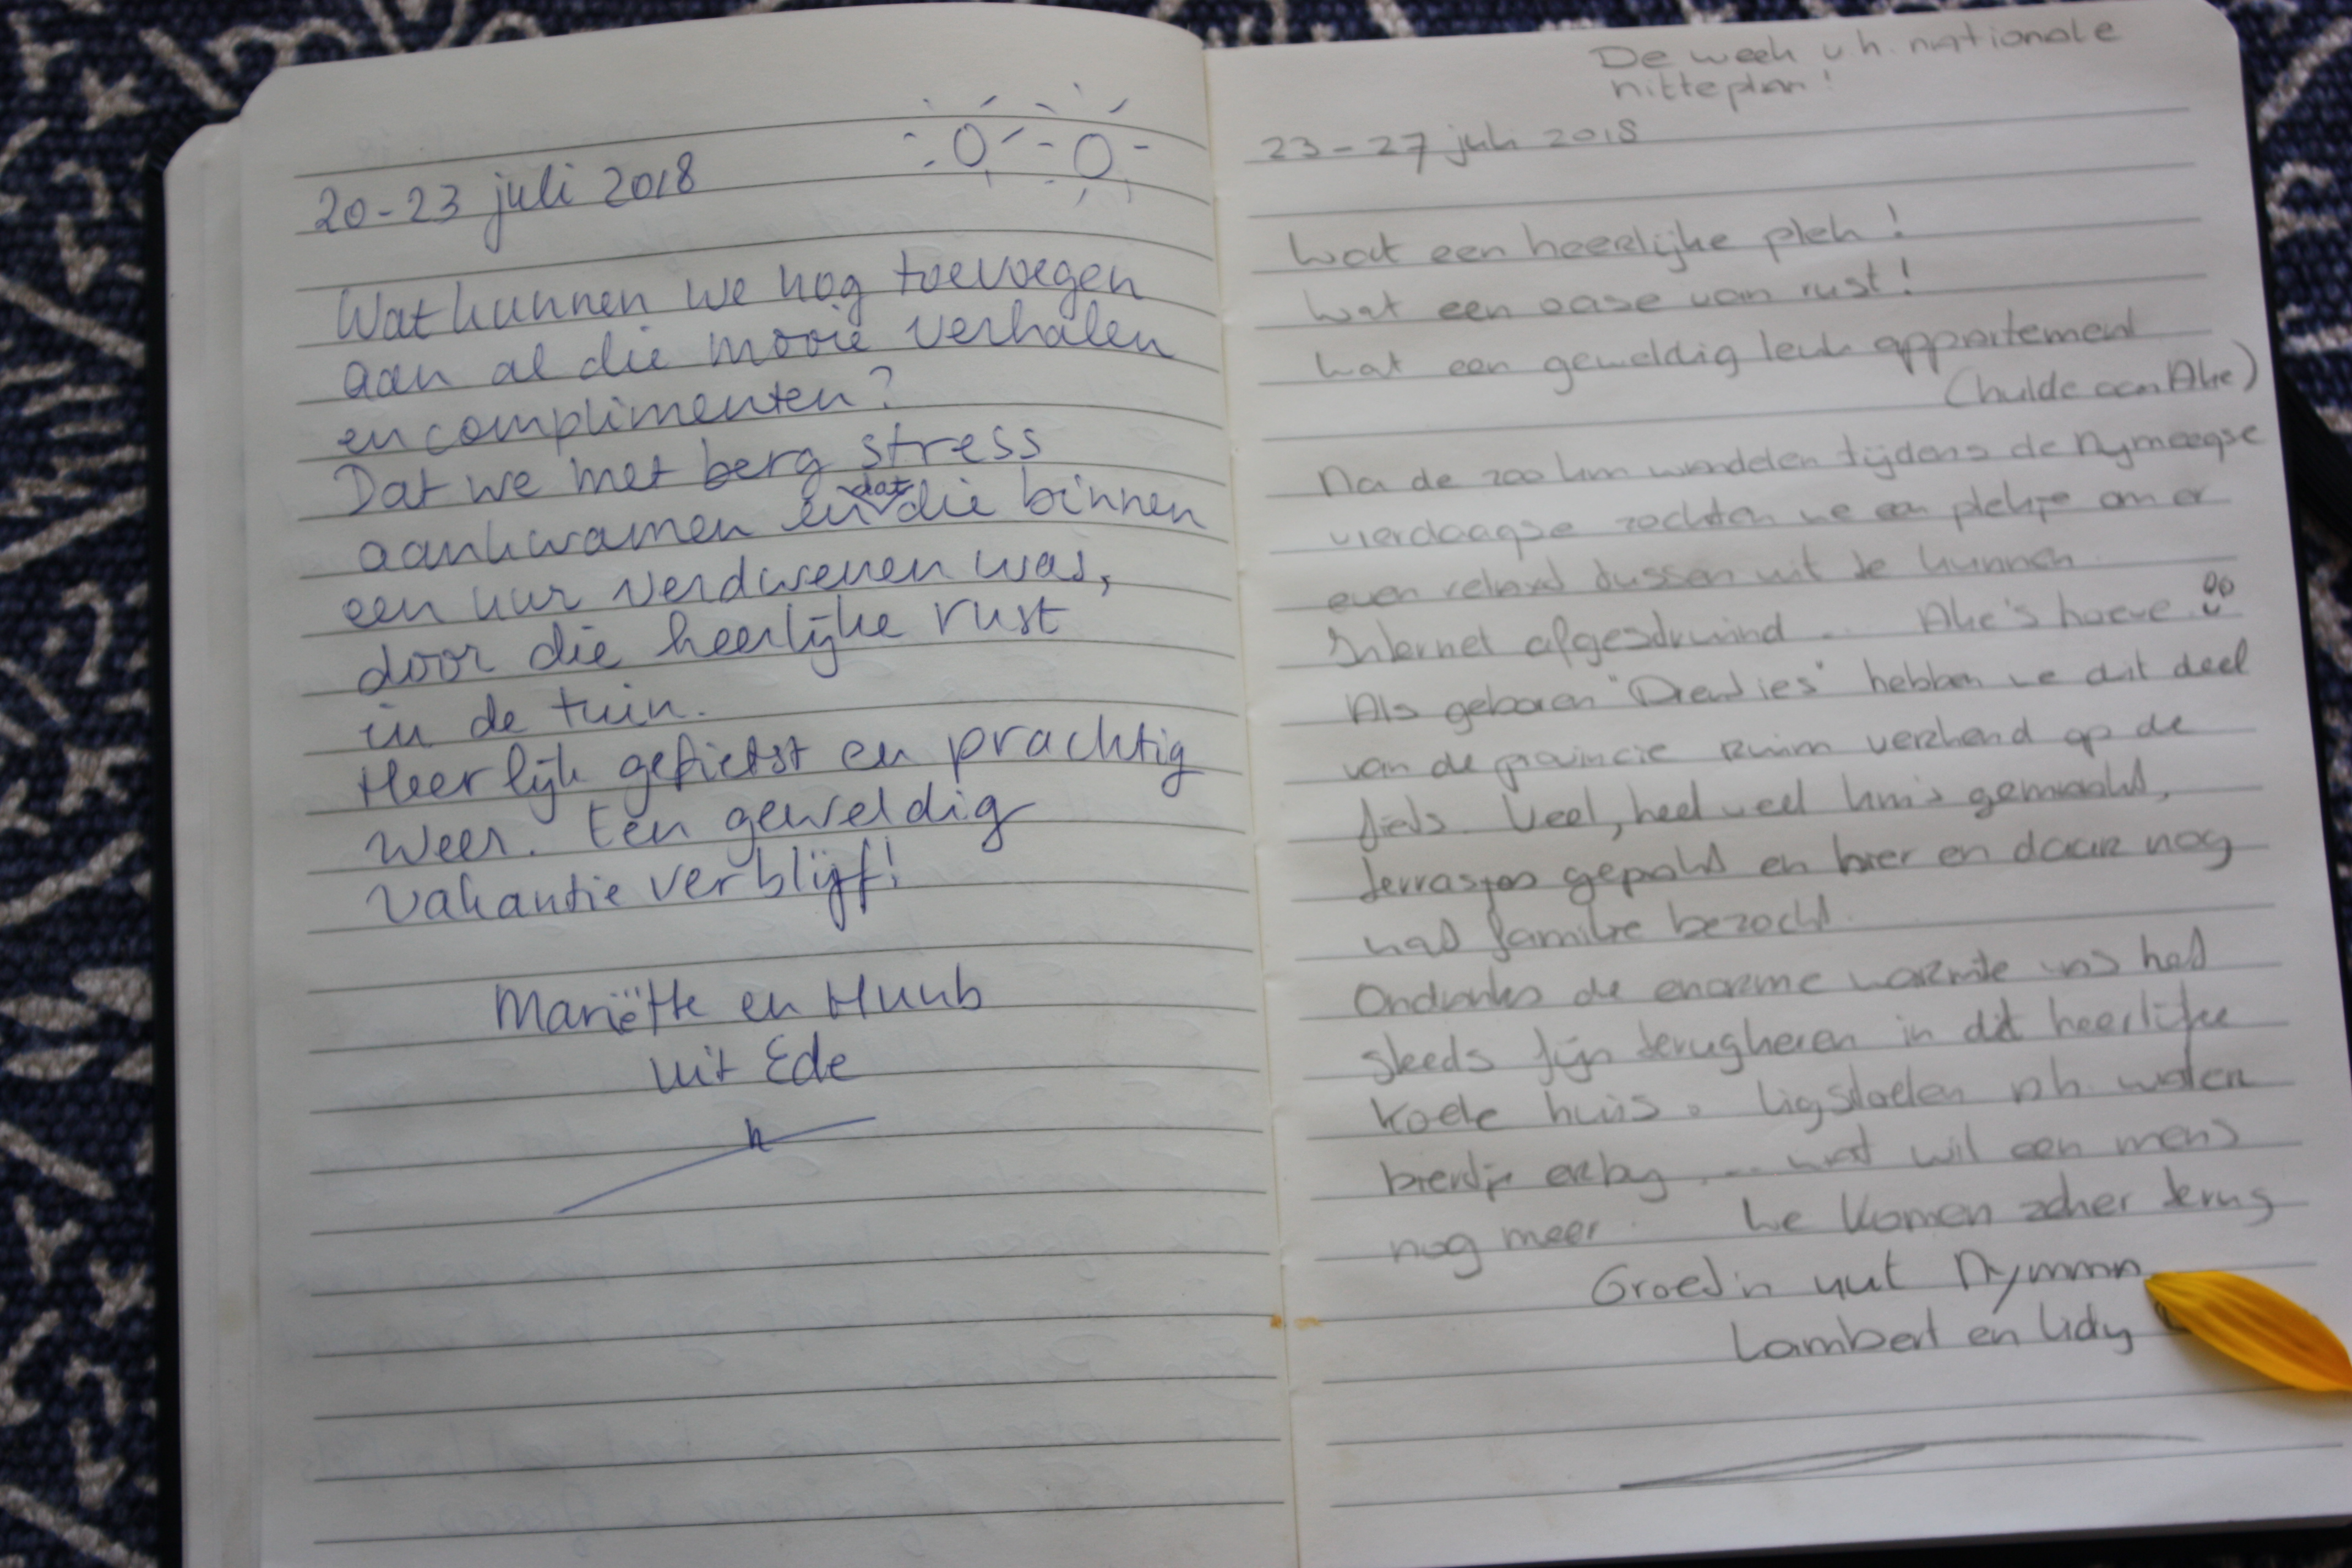 20-23 juli 2018
Wat kunnen we nog toevoegen
aan al die mooie verhalen
en complimenten?
Dat we met berg stress
aankwamen en dat die binnen
een uur verdwenen was,
door die heerlijke rust
in de tuin.
Heerlijk gefietst en prachtig
weer. Een geweldig
vakantie verblijf!
Mariëtte en Huub
uit Ede
De week v.h. nationale
hitteplan!
23-27 juli 2018
Wat een heerlijke plek!
Wat een oase van rust!
Wat een geweldig leuk appartement
(hulde aan Ake)
Na de 200 km wandelen tijdens de Nymeegse
vierdaagse zochten we een plekje om er
even relaxd tussen uit te kunnen.
Internet afgestruind ... Ake's hoeve
Als geboren "Drenties" hebben we dit deel
van de provincie ruim verkend op de
fiets. Veel, heel veel km's gemaakt,
terrasjes gepakt en hier en daar nog
wat familie bezocht.
Ondanks de enorme warmte was het
steeds fijn terugkeren in dit heerlijke
koele huis. Ligstoelen n.h. water
biertje erby ... wat wil een mens
nog meer. We komen zeker terug
Groet'n uut Nymmn
Lambert en Lidy